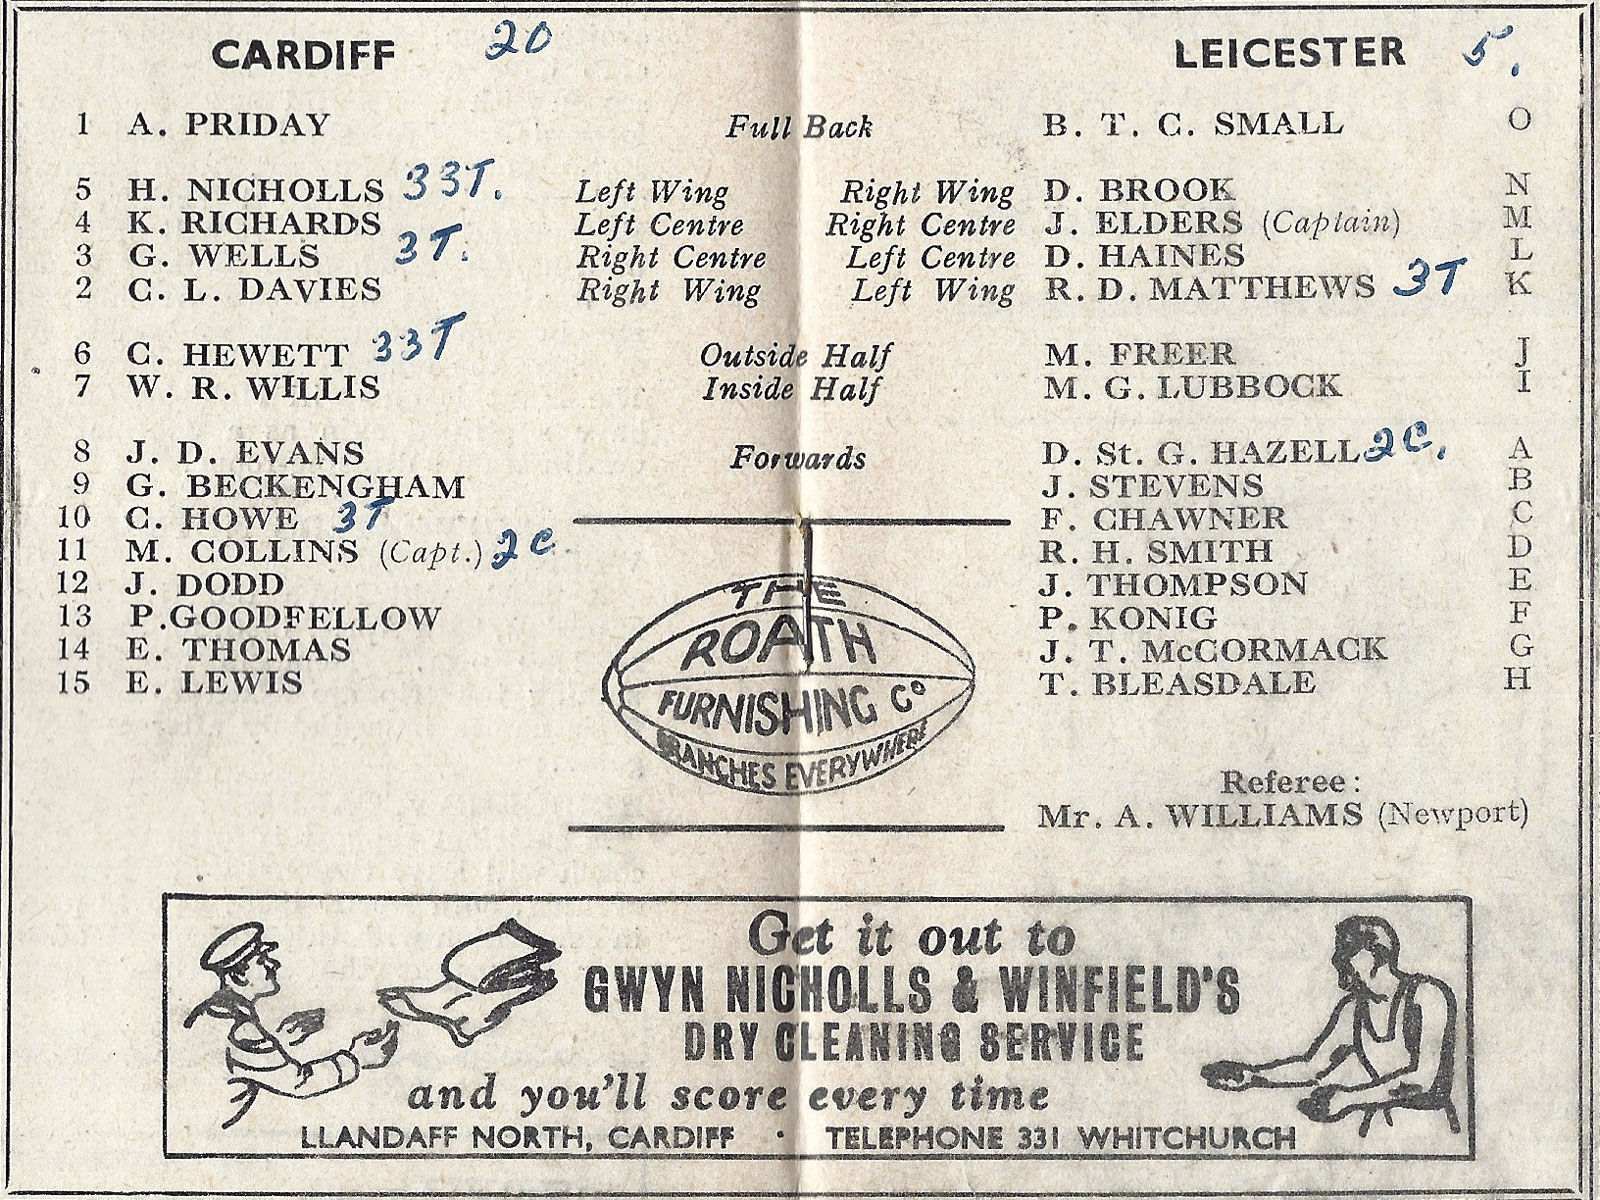 CARDIFF 20 LEICESTER 5.
1 A. PRIDAY Full Back B. T. C. SMALL O
5 H. NICHOLLS 33T. Left Wing Right Wing D. BROOK N
4 K. RICHARDS Left Centre Right Centre J. ELDERS (Captain) M
3 G. WELLS 3T. Right Centre Left Centre D. HAINES L
2 C. L. DAVIES Right Wing Left Wing R. D. MATTHEWS 3T K
6 C. HEWETT 33T Outside Half M. FREER J
7 W. R. WILLIS Inside Half M. G. LUBBOCK I
8 J. D. EVANS Forwards D. St. G. HAZELL 2C. A
9 G. BECKENGHAM J. STEVENS B
10 C. HOWE 3T F. CHAWNER C
11 M. COLLINS (Capt.) 2C. R. H. SMITH D
12 J. DODD J. THOMPSON E
13 P.GOODFELLOW P. KONIG F
14 E. THOMAS J. T. McCORMACK G
15 E. LEWIS T. BLEASDALE H
THE
ROATH
FURNISHING Co
BRANCHES EVERYWHERE
Referee:
Mr. A. WILLIAMS (Newport)
Get it out to
GWYN NICHOLLS & WINFIELD'S
DRY CLEANING SERVICE
and you'll score every time
LLANDAFF NORTH, CARDIFF · TELEPHONE 331 WHITCHURCH